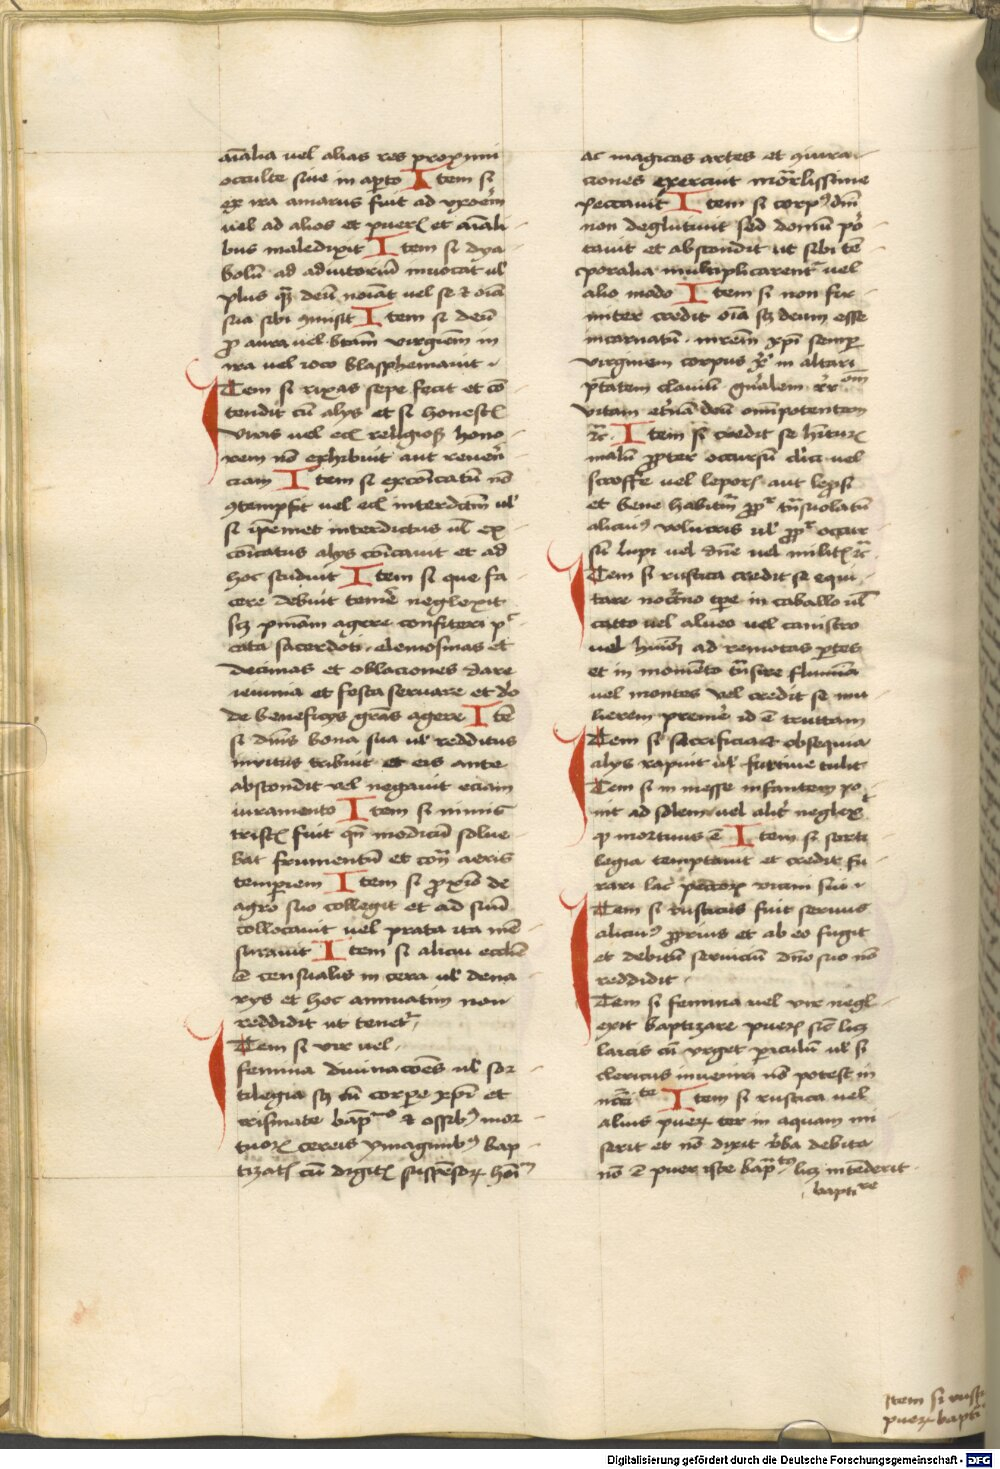 aīalia vel alias res proximi
occulte siue in aperto Item si
ex ira amarus fuit ad vxorem
vel ad alios et pueros et aīali
bus maledixit Item si dya
bolū ad adiutoriū inuocat ul'
plus qȝ deū noīat vel se et oīa
sua sibi cōmisit Item si deū
pro aura vel btām virginem in
ira vel ioco blasphemauit
Item si rixas sepe fecit et cō
tendit cū alijs et si honestis
viris vel eciā religiosis hono
rem nō exhibuit aut reuerē
ciam Item si excōicatum nō
contempsit vel eciā interdictum ul'
si ipsemet interdictus ul' ex
cōicatus alijs cōicauit et ad
hoc studuit Item si que fa
cere debuit temere neglexit
scȝ pniam agere confiteri pec
cata sacerdoti elemosinas et
decimas et oblaciones dare
ieiunia et festa seruare et deo
de beneficijs grās agere Itē
si dnīs bona sua ul' redditus
inuitus tribuit et eis ante
abscondit vel negauit eciam
iuramento Item si nimis
tristis fuit qn modicū solue
bat frumentū et contra aeris
temperiem Item si proximo de
agro suo collegit et ad suū
collocauit vel prata ita men
surauit Item si alicui ecclesie
ē censualis in cera ul' dena
rijs et hoc annuatim non
reddidit ut tenetur
Item si vir vel
femina diuinacōes ul' sor
tilegia scȝ cū corpore xpi et
crismate baptismo et ossibus mor
tuorum cereis ymaginibus bap
tizatis cū digitis suspensorum
ac magicas artes et coniura
ciones exercuit mortalissime
peccauit Item si corpus dni
non deglutiuit sed domū por
tauit et abscondit ut sibi tem
poralia multiplicarent vel
alio modo Item si non fir
miter credit oīa scȝ deum esse
incarnatū matrem xpi semper
virginem corpus xpi in altari
ptatem clauiū gnalem rrōem
vitam etnā deū omnipotentem
etc. Item si credit se habiturum
malū propter occursū clerici vel
scroffe vel leporis aut leprosi
et bene habiturum propter transuolatū
alicuius volucris ul' propter occur
sū lupi vel dne vel militis etc
Item si rustica credit se equi
tare nocturno tpe in caballo ul'
catto vel alueo vel canistro
vel ad remotas partes
et in momento transire flumina
vel montes vel credit se mu
lierem premere id ē truttam
Item si sacrificia et obsequia
alijs rapuit ul' furtiue tulit
Item si in messe infantem po
nit ad solem vel aliter neglexit
qp mortuus ē Item si sorti
legia temptauit et credit fu
rari lac peccorum vicini sui
Item si rusticus fuit seruus
alicuius proprius et ab eo fugit
et debitū seruiciū dno suo nō
reddidit
Item si femina vel vir negl
exit baptizare pueros sicut licȝ
laicis cū vrget periculū ul' si
clericus inueniri nō potest in
necessitate Item si rustica vel
alius puerum ter in aquam mi
serit et nō dixit verba debita
nō ē puer iste baptizatus licȝ intenderit
baptizare
Item si rusti
puerum bapti
Digitalisierung gefördert durch die Deutsche Forschungsgemeinschaft - DFG